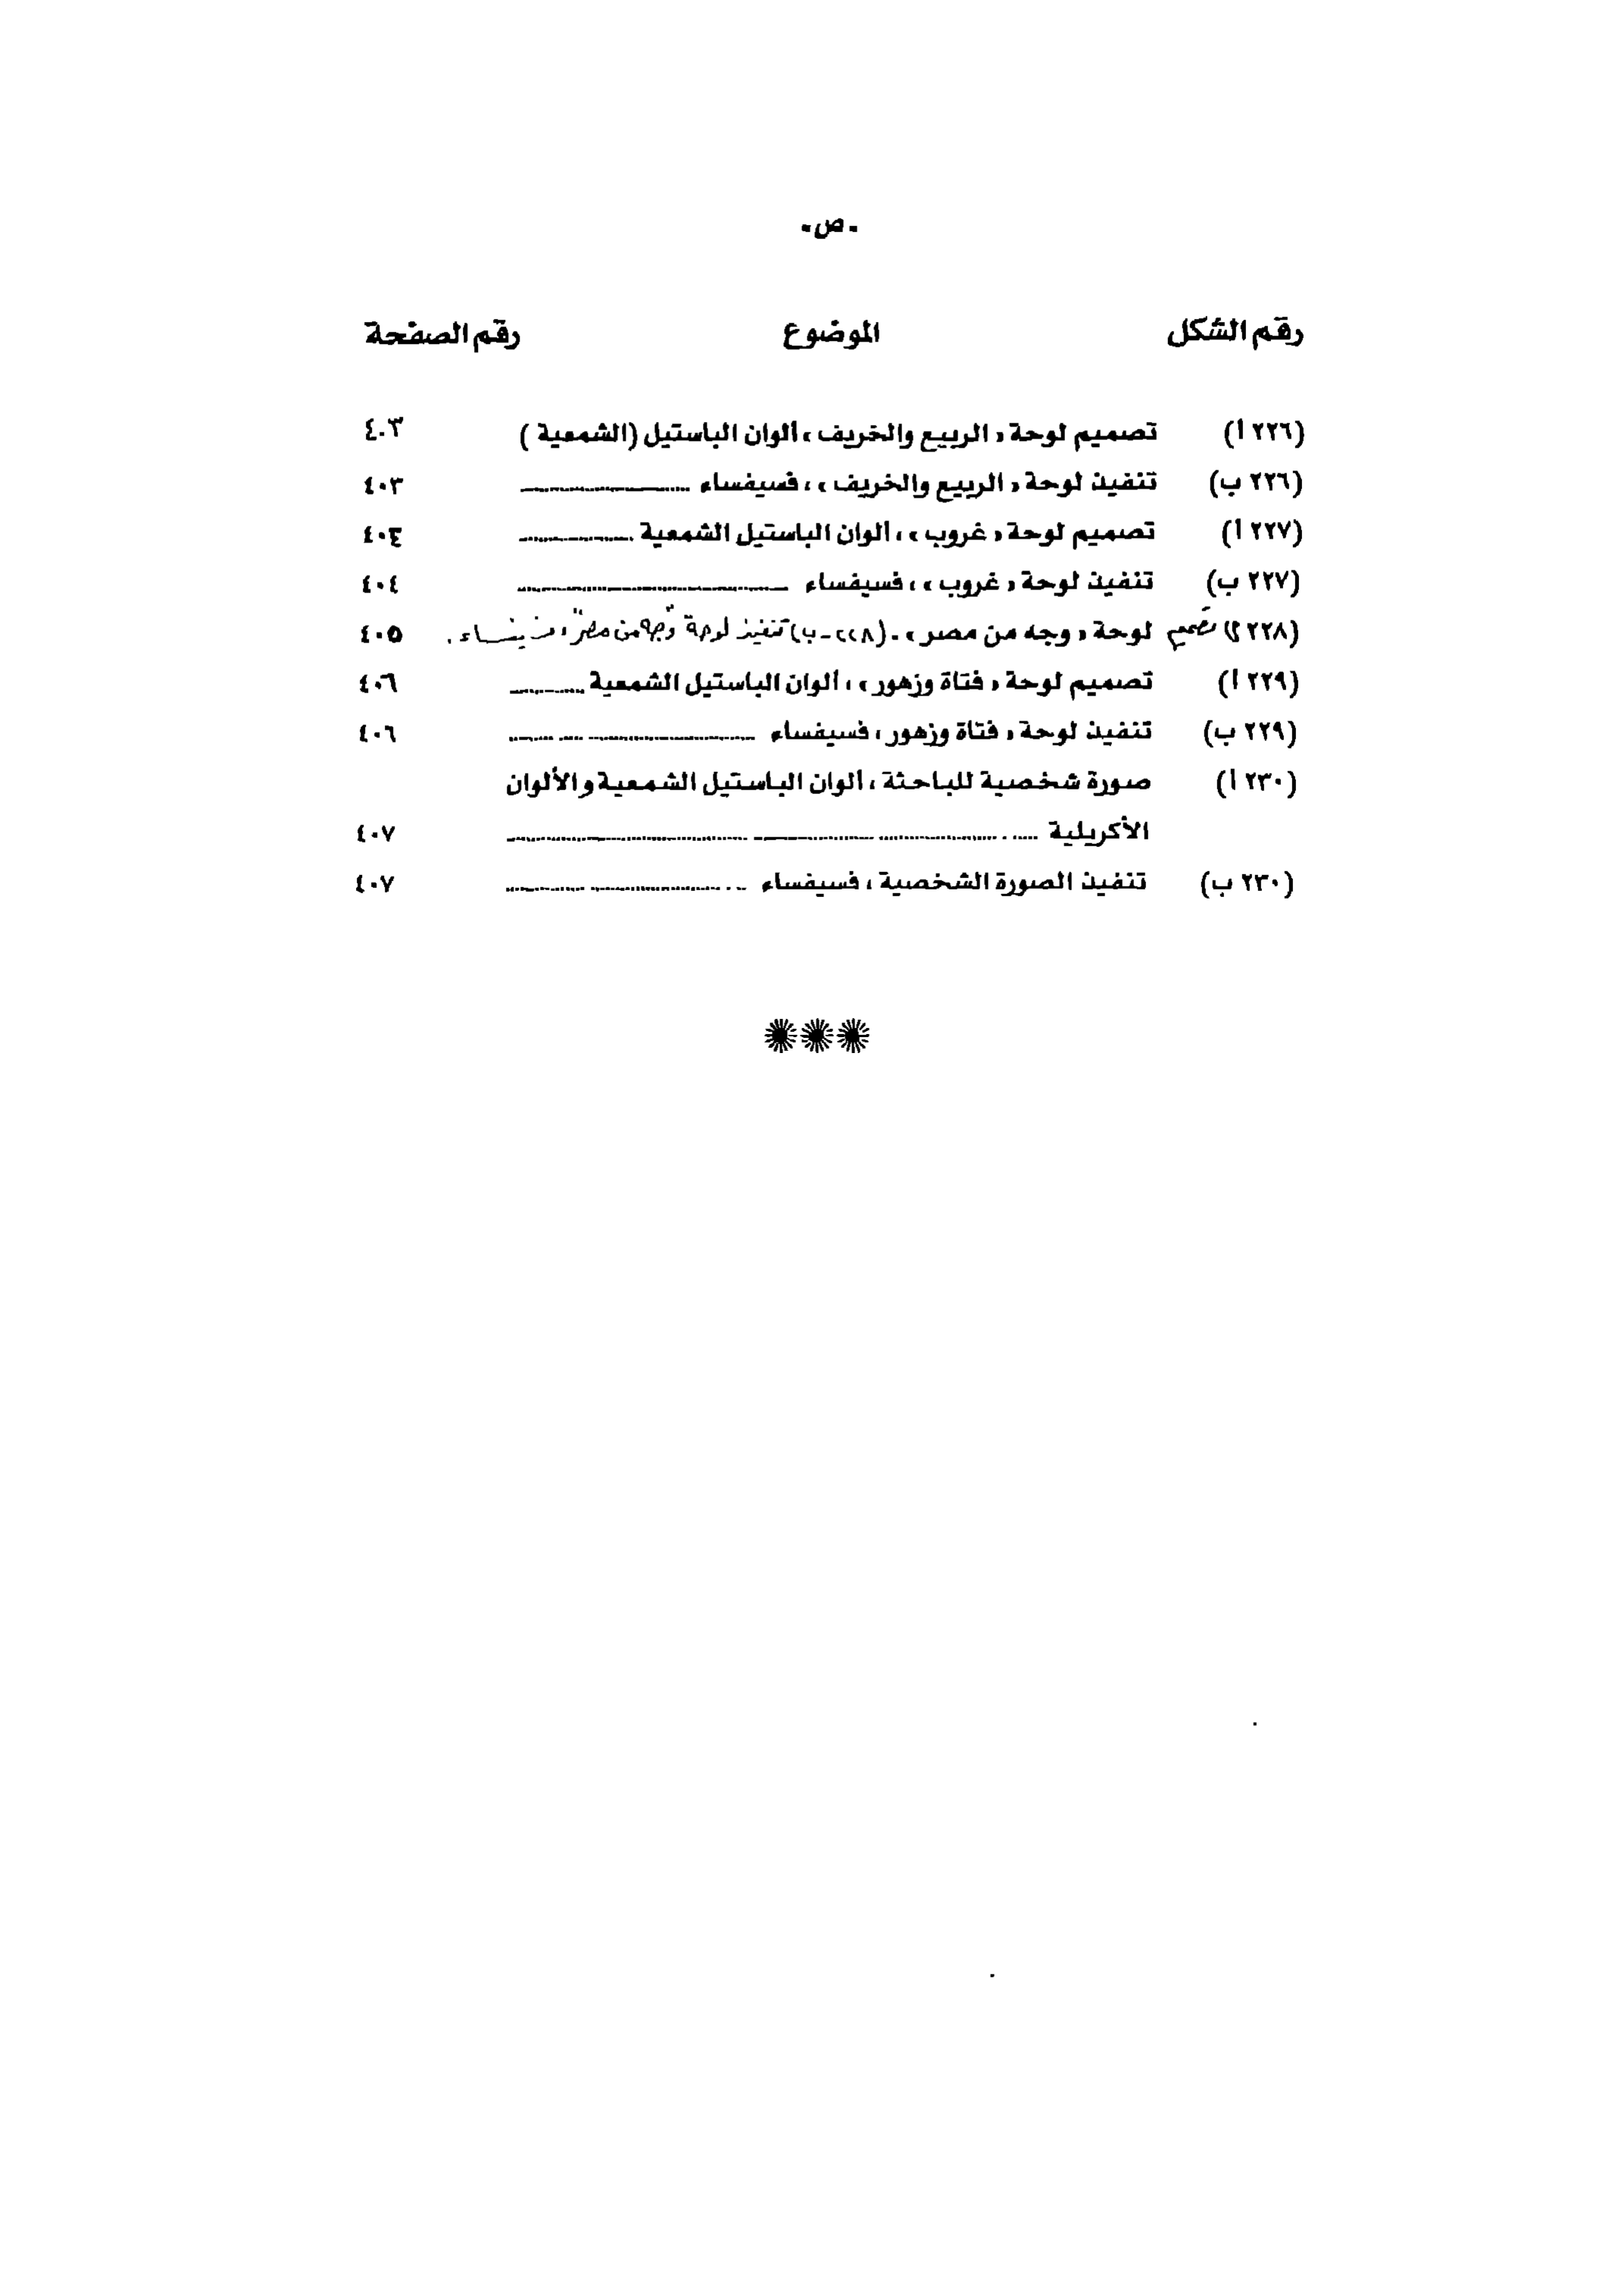 - ص -
رقم الشكل الموضوع رقم الصفحة
(٢٢٦ أ) تصميم لوحة « الربيع والخريف » ألوان الباستيل (الشمعية ) ٤٠٣
(٢٢٦ ب) تنفيذ لوحة « الربيع والخريف » ، فسيفساء ٤٠٣
(٢٢٧ أ) تصميم لوحة « غروب » ، ألوان الباستيل الشمعية ٤٠٤
(٢٢٧ ب) تنفيذ لوحة « غروب » ، فسيفساء ٤٠٤
(٢٢٨ أ) تصميم لوحة « وجه من مصر » . (٢٢٨ - ب) تنفيذ لوحة "وجه من مصر" ، فسيفساء . ٤٠٥
(٢٢٩ أ) تصميم لوحة « فتاة وزهور » ، ألوان الباستيل الشمعية ٤٠٦
(٢٢٩ ب) تنفيذ لوحة « فتاة وزهور ، فسيفساء ٤٠٦
(٢٣٠ أ) صورة شخصية للباحثة ، ألوان الباستيل الشمعية والألوان
الأكريلية ٤٠٧
(٢٣٠ ب) تنفيذ الصورة الشخصية ، فسيفساء ٤٠٧